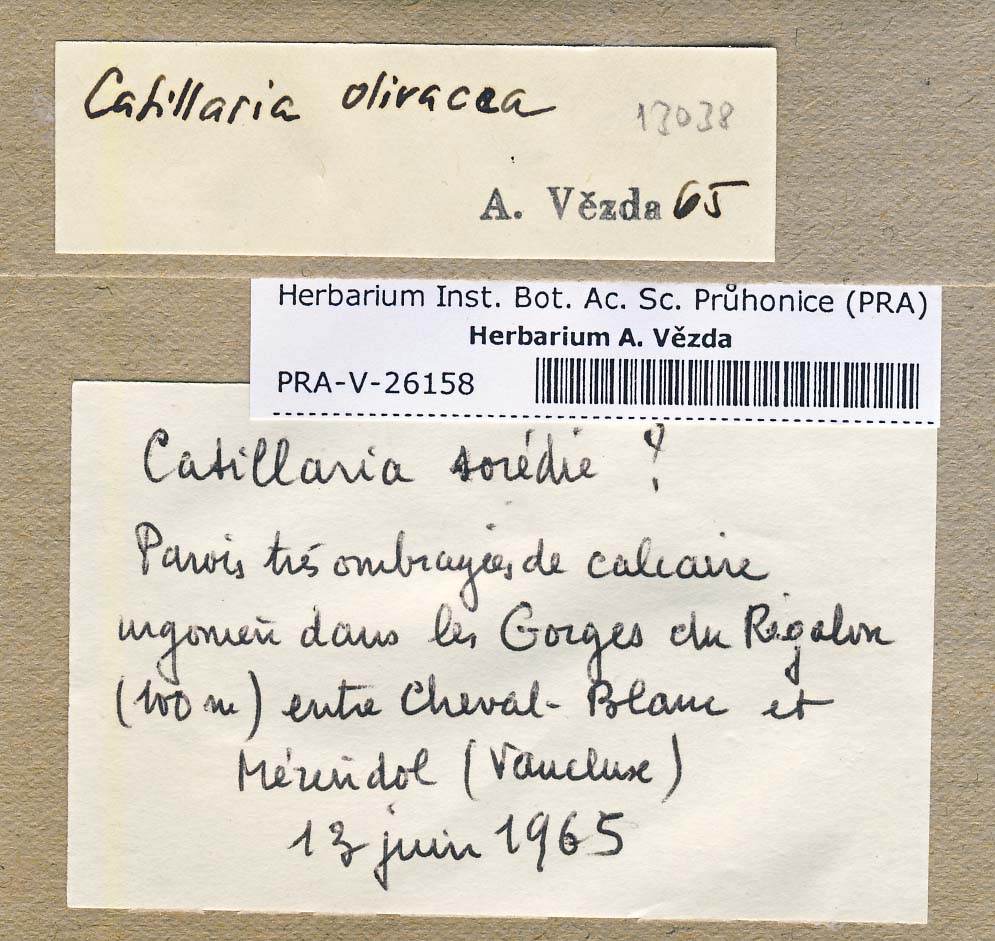 Catillaria olivacea
13038
A. Vězda 65
Herbarium Inst. Bot. Ac. Sc. Průhonice (PRA)
Herbarium A. Vězda
PRA-V-26158
Catillaria sorédié ?
Parois très ombragées de calcaire
urgonien dans les Gorges du Régalon
(100 m) entre Cheval-Blanc et
Mérindol (Vaucluse)
13 juin 1965